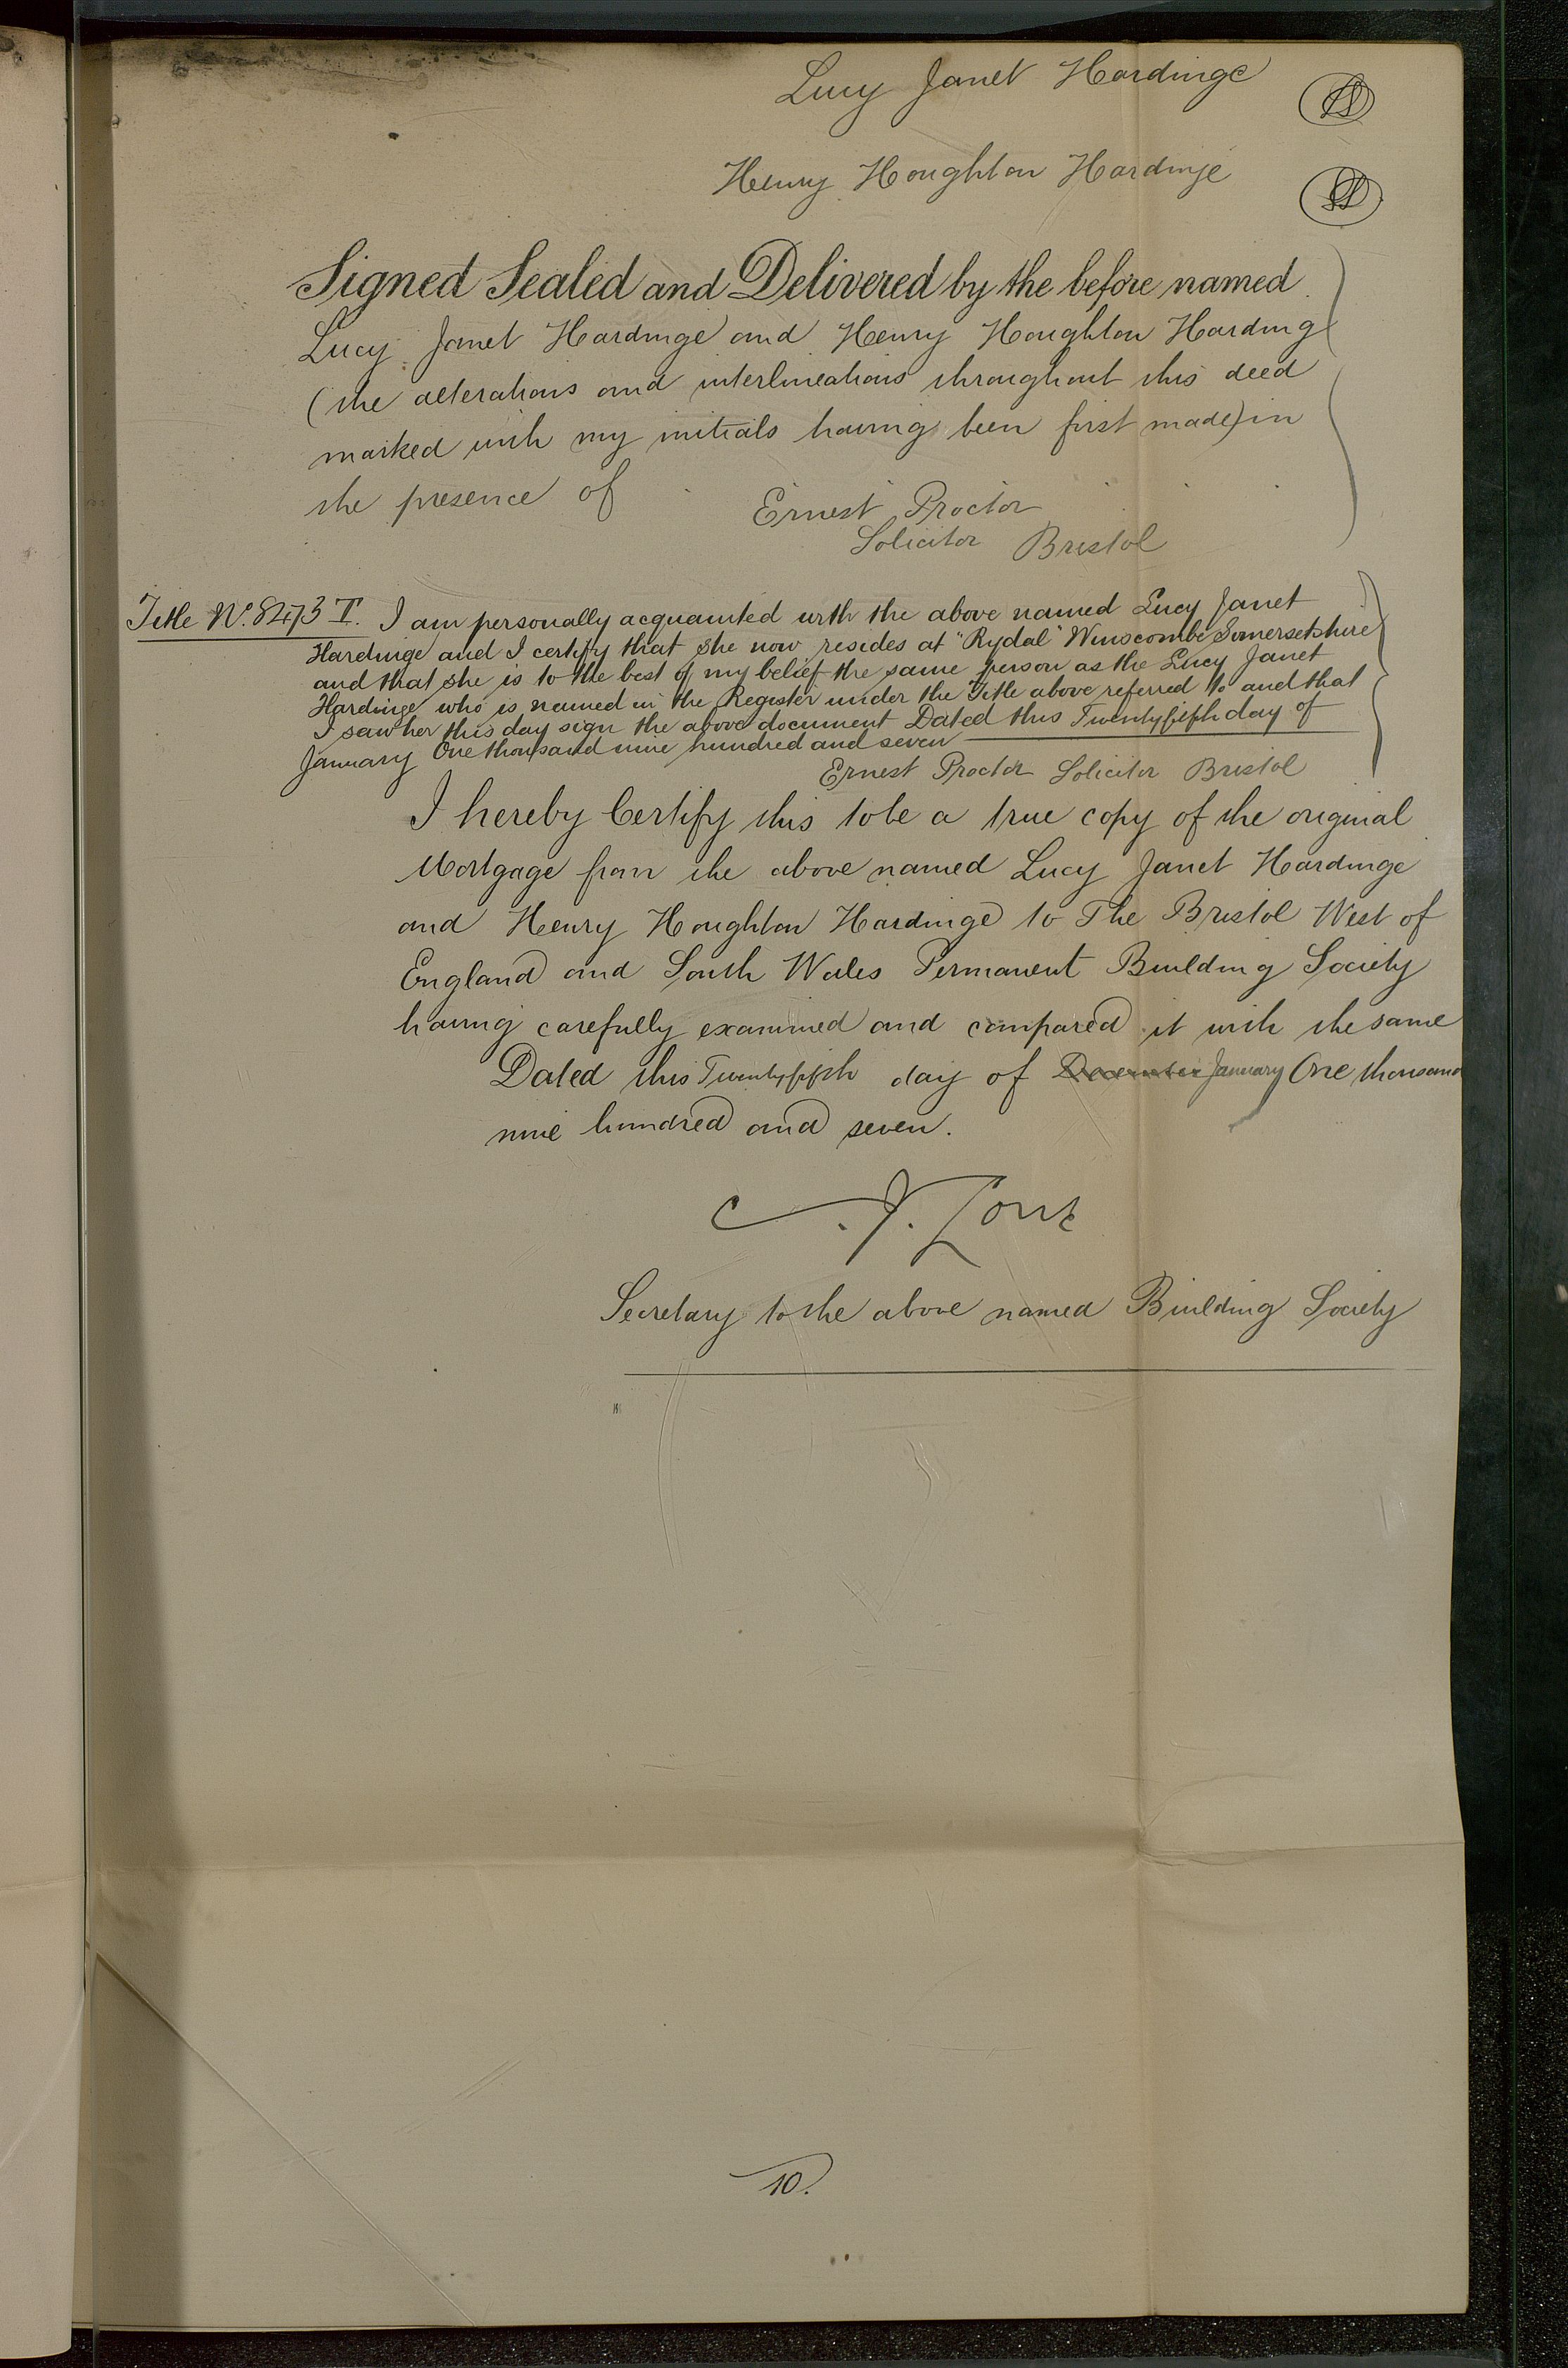 Lucy Janet Hardinge
Henry Houghton Hardinge
Signed Sealed and Delivered by the before named
Lucy Janet Hardinge and Henry Houghton Harding
(the alterations and interlineations throughout this deed
marked with my initials having been first made) in
the presence of
Ernest Proctor
Solicitor Bristol
Title No. 8473 T. I am personally acquainted with the above named Lucy Janet
Hardinge and I certify that she now resides at "Rydal" Winscombe Somersetshire
and that she is to the best of my belief the same person as the Lucy Janet
Hardinge who is named in the Register under the Title above referred to and that
I saw her this day sign the above document Dated this Twentyfifth day of
January One thousand nine hundred and seven
Ernest Proctor Solicitor Bristol
I hereby Certify this to be a true copy of the original
Mortgage from the above named Lucy Janet Hardinge
and Henry Houghton Hardinge to The Bristol West of
England and South Wales Permanent Building Society
having carefully examined and compared it with the same
Dated this Twentyfifth day of December January One thousand
nine hundred and seven.
Secretary to the above named Building Society
10.